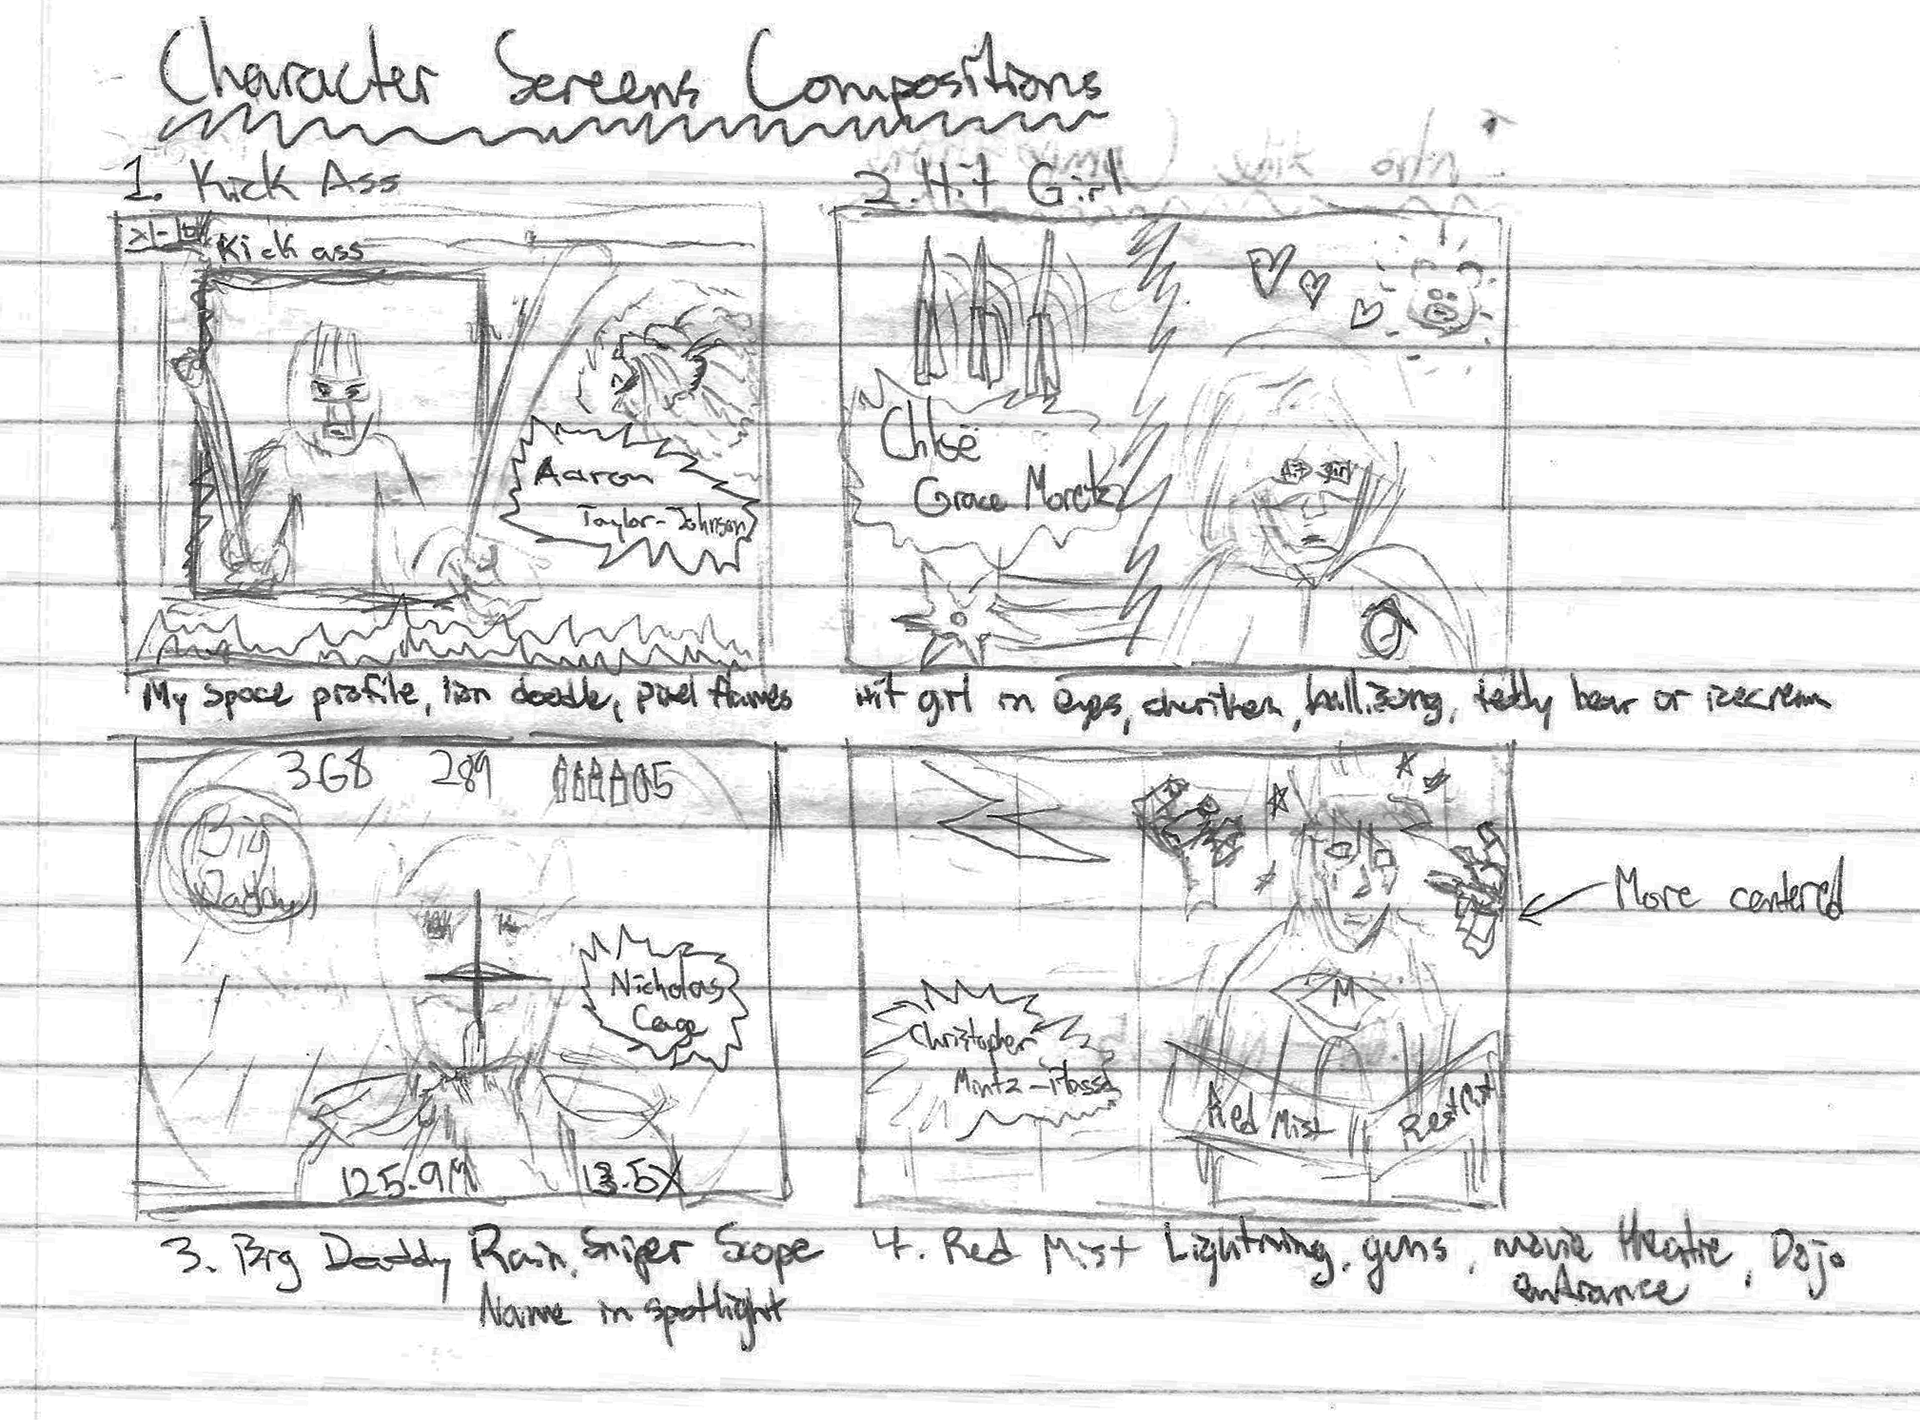 Character Screens Compositions
1. Kick Ass
2. Hit Girl
Kick ass
Aaron
Taylor-Johnson
Chloë
Grace Moretz
Hit girl
My space profile, lion doodle, pixel flames
Hit girl in eyes, shuriken, balisong, teddy bear or icecream
3.68 289 05
Big
Daddy
Nicholas
Cage
125.9M 13.5X
M
Christopher
Mintz-Plasse
Red Mist
Red Mist
More centered
3. Big Daddy Rain, Sniper Scope
Name in spotlight
4. Red Mist Lightning, guns, movie theatre, Dojo
entrance